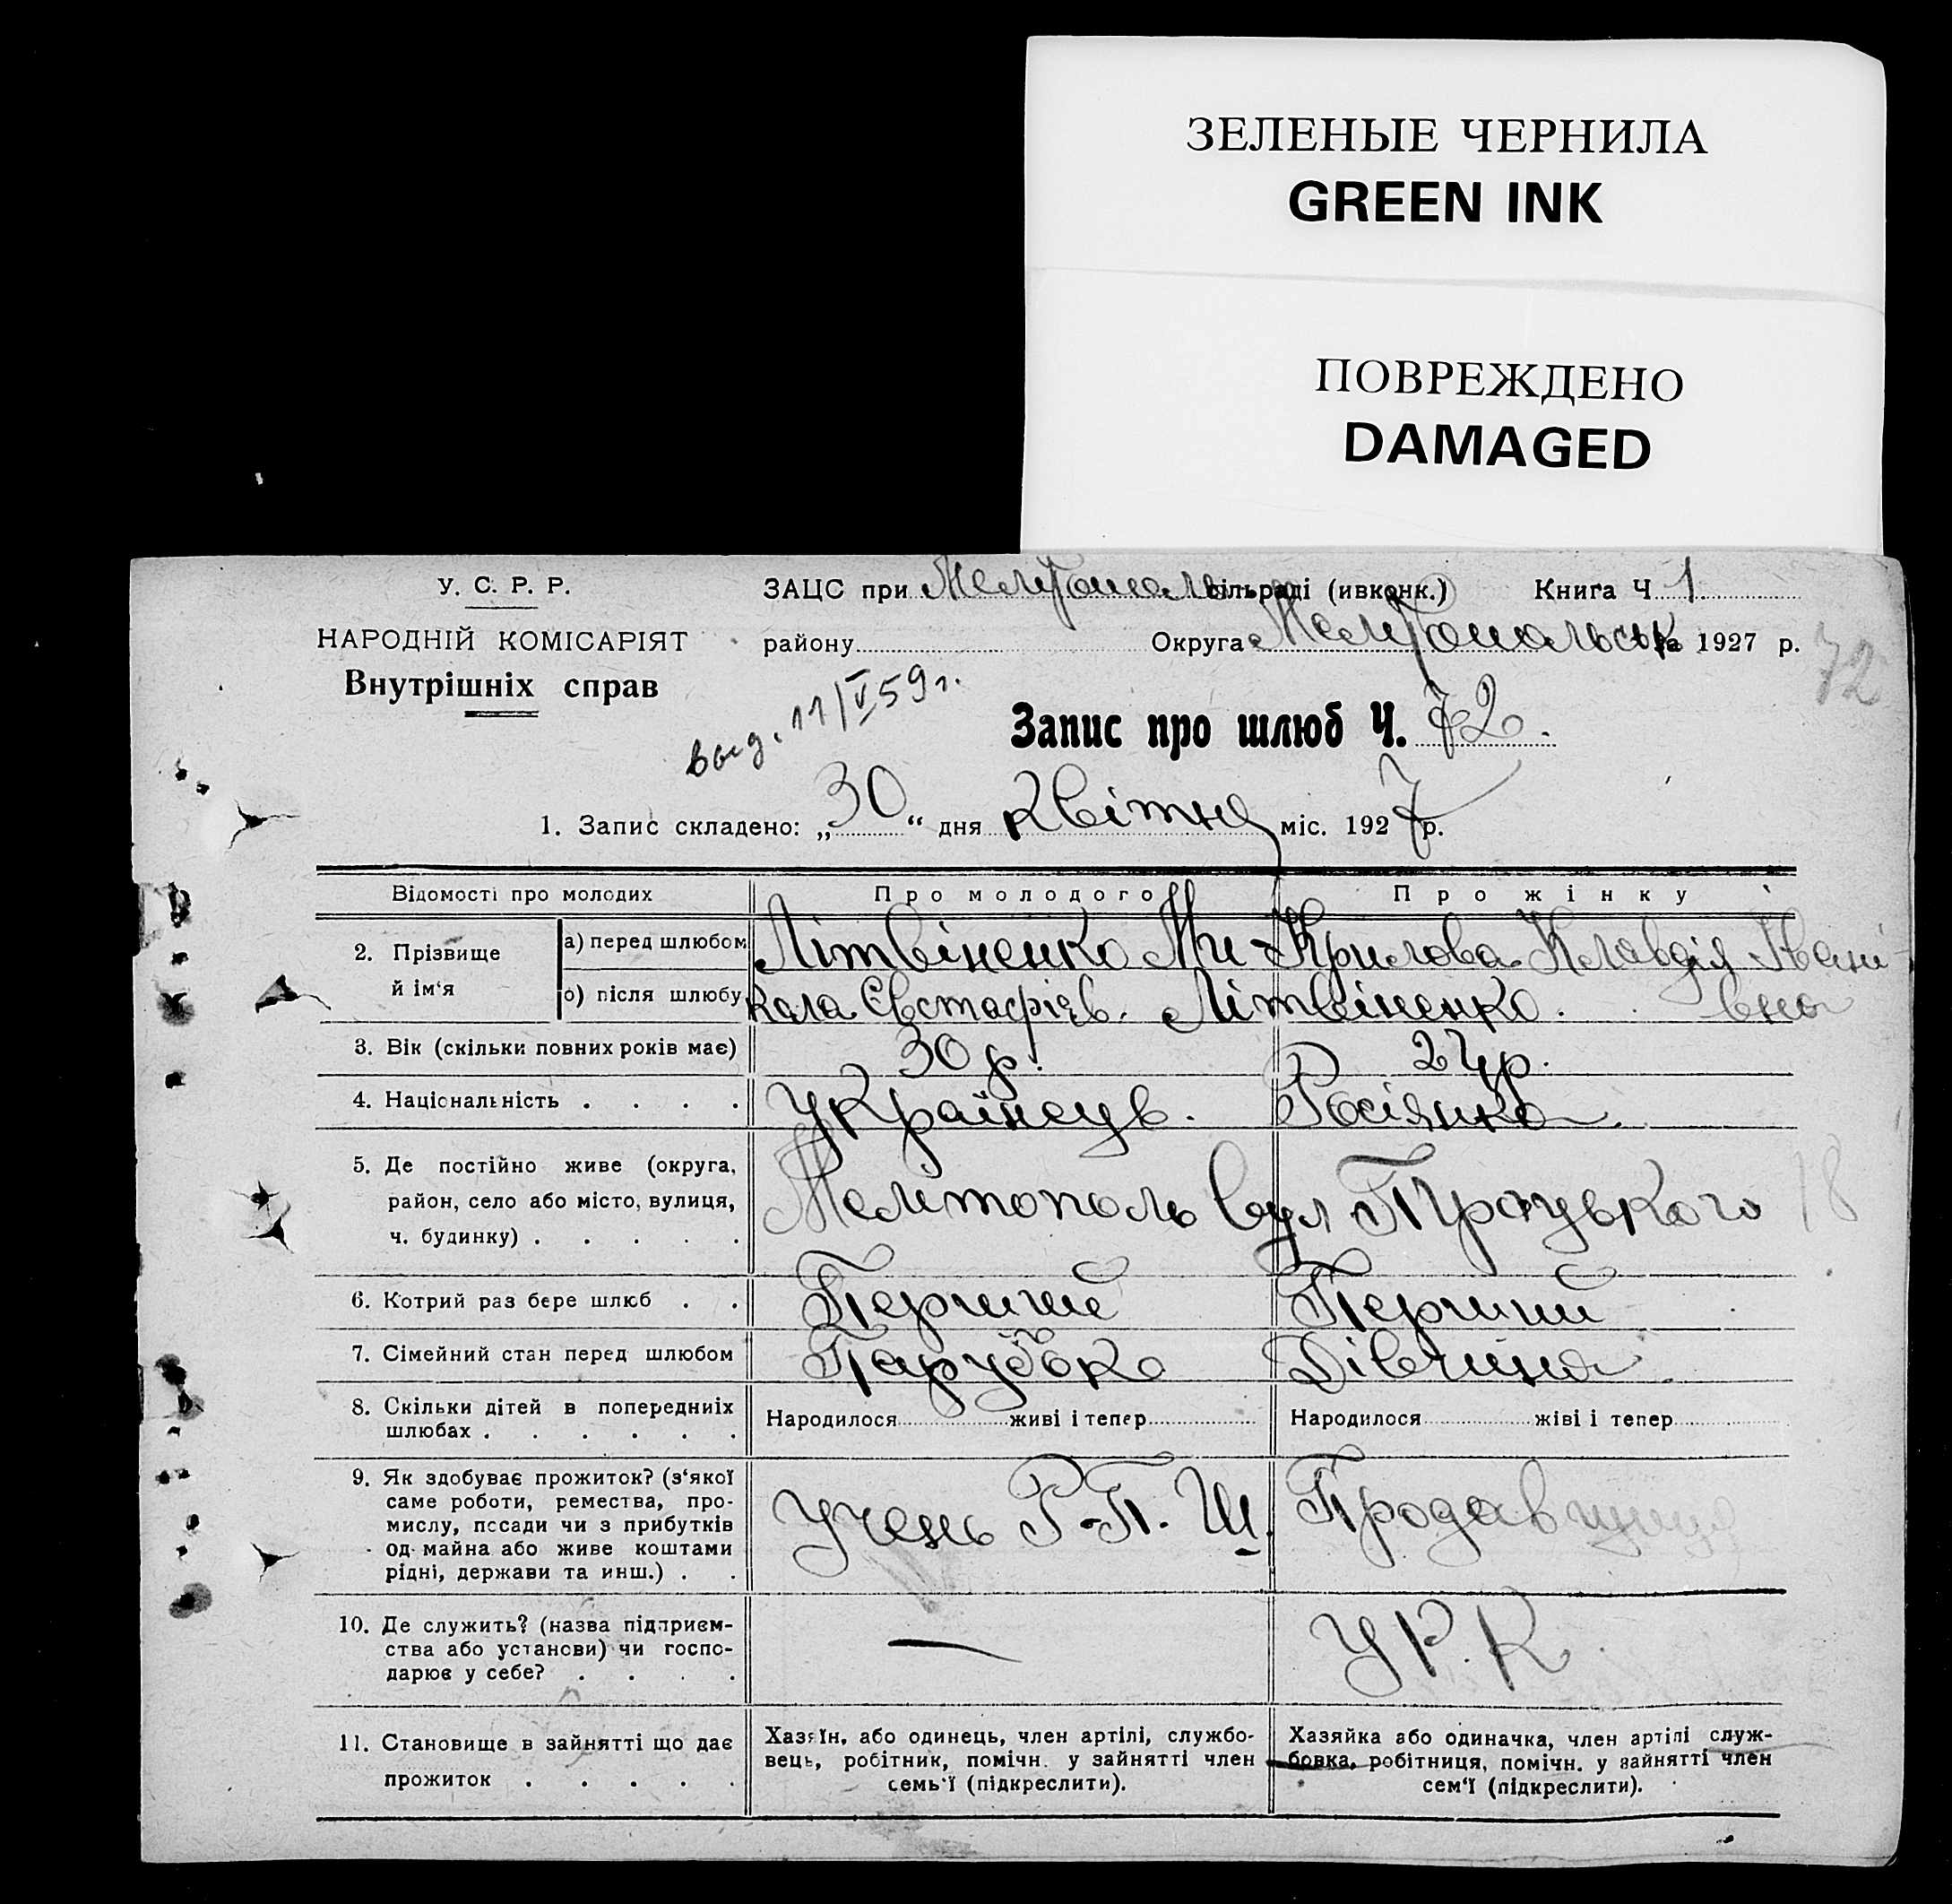 ЗЕЛЕНЫЕ ЧЕРНИЛА
GREEN INK
ПОВРЕЖДЕНО
DAMAGED
У. С. Р. Р.
ЗАЦС при Мелітопольск сільраді (ивконк.) Книга Ч 1
НАРОДНІЙ КОМІСАРІЯТ
району Округа Мелітопольськ 1927 р.
72
Внутрішніх справ
выд. 11/V 59 г.
Запис про шлюб Ч. 72.
1. Запис складено: „30“ дня Квітня міс. 1927 р.
Відомості про молодих
Про молодого
Про жінку
2. Прізвище й ім‘я
а) перед шлюбом
Літвіненко Ми-
Крилова Клавдія Івані-
о) після шлюбу
кола Євстафієв.
Літвіненко.
вна
3. Вік (скільки повних років має)
30 р.
24 р.
4. Національність . . . .
Українець.
Росіянка.
5. Де постійно живе (округа,
район, село або місто, вулиця,
ч. будинку) . . . . .
Мелітополь вул Троцького 18
6. Котрий раз бере шлюб . .
Перший
Перший
7. Сімейний стан перед шлюбом
Парубок
Дівчина.
8. Скільки дітей в попередниіх
шлюбах . . . . . .
Народилося живі і тепер
Народилося жіві і тепер
9. Як здобуває прожиток? (з‘якої
саме роботи, ремества, про-
мислу, посади чи з прибутків
од майна або живе коштами
рідні, держави та инш.) . .
Учень Р.П.Ш.
Продавщиця
10. Де служить? (назва підприєм-
ства або установи) чи госпо-
дарює у себе? . . . .
—
У.Р.К.
11. Становище в зайнятті що дає
прожиток . . . . .
Хазяїн, або одинець, член артілі, службо-
вець, робітник, помічн. у зайнятті член
семь‘ї (підкреслити).
Хазяйка або одиначка, член артілі служ-
бовка, робітниця, помічн. у зайнятті член
сем‘ї (підкреслити).